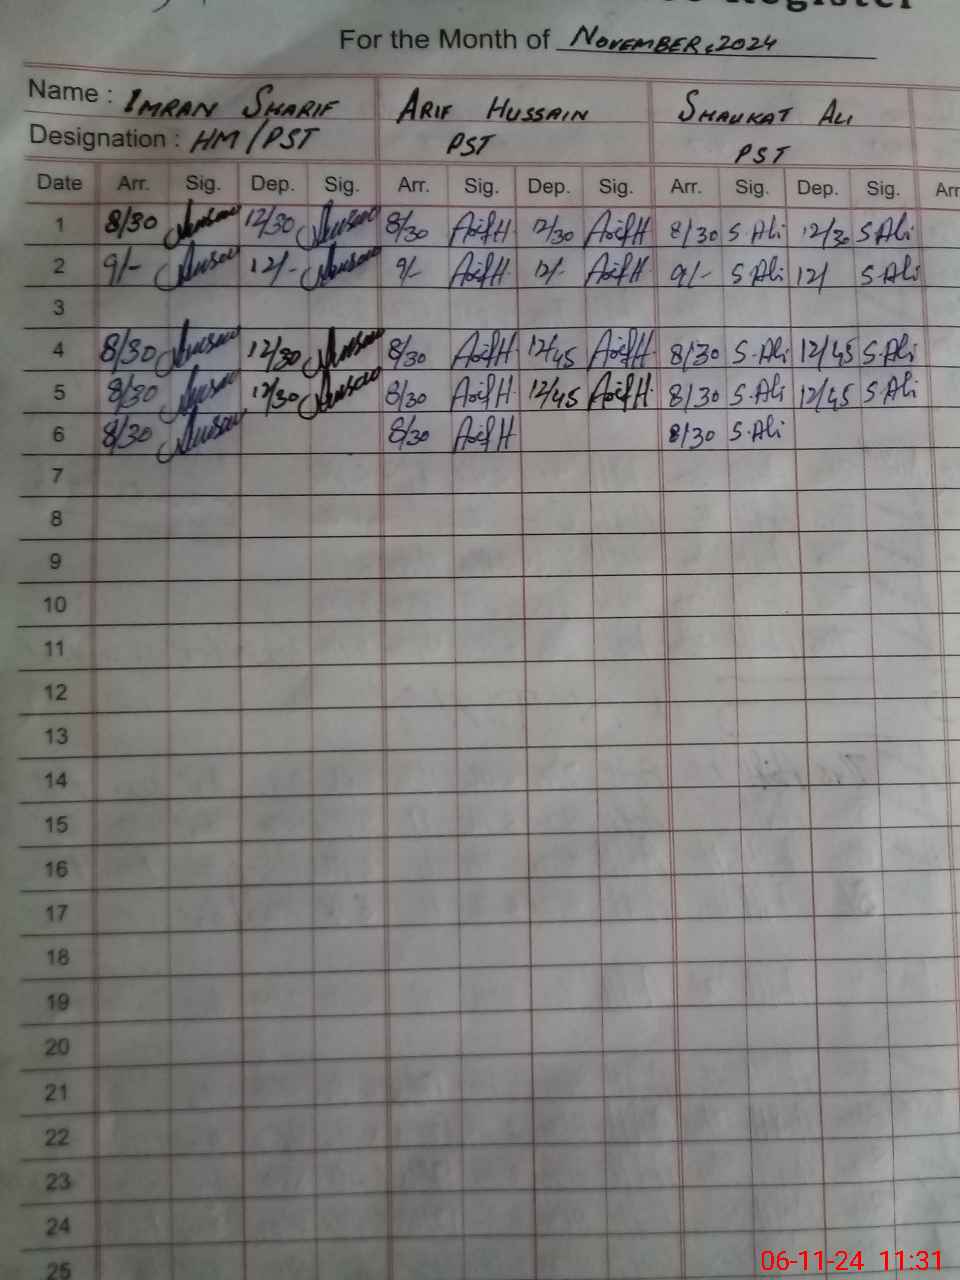 Register
For the Month of NOVEMBER, 2024
Name : IMRAN SHARIF ARIF HUSSAIN SHAUKAT ALI
Designation : HM/PST PST PST
Date Arr. Sig. Dep. Sig. Arr. Sig. Dep. Sig. Arr. Sig. Dep. Sig. Arr
1 8/30 12/30 8/30 Arif H 12/30 Arif H 8/30 S.Ali 12/30 S.Ali
2 9/- 12/- 9/- Arif H 12/- Arif H 9/- S.Ali 12/ S.Ali
3
4 8/30 12/30 8/30 Arif H 12/45 Arif H 8/30 S.Ali 12/45 S.Ali
5 8/30 12/30 8/30 Arif H 12/45 Arif H 8/30 S.Ali 12/45 S.Ali
6 8/30 8/30 Arif H 8/30 S.Ali
7
8
9
10
11
12
13
14
15
16
17
18
19
20
21
22
23
24
25
06-11-24 11:31